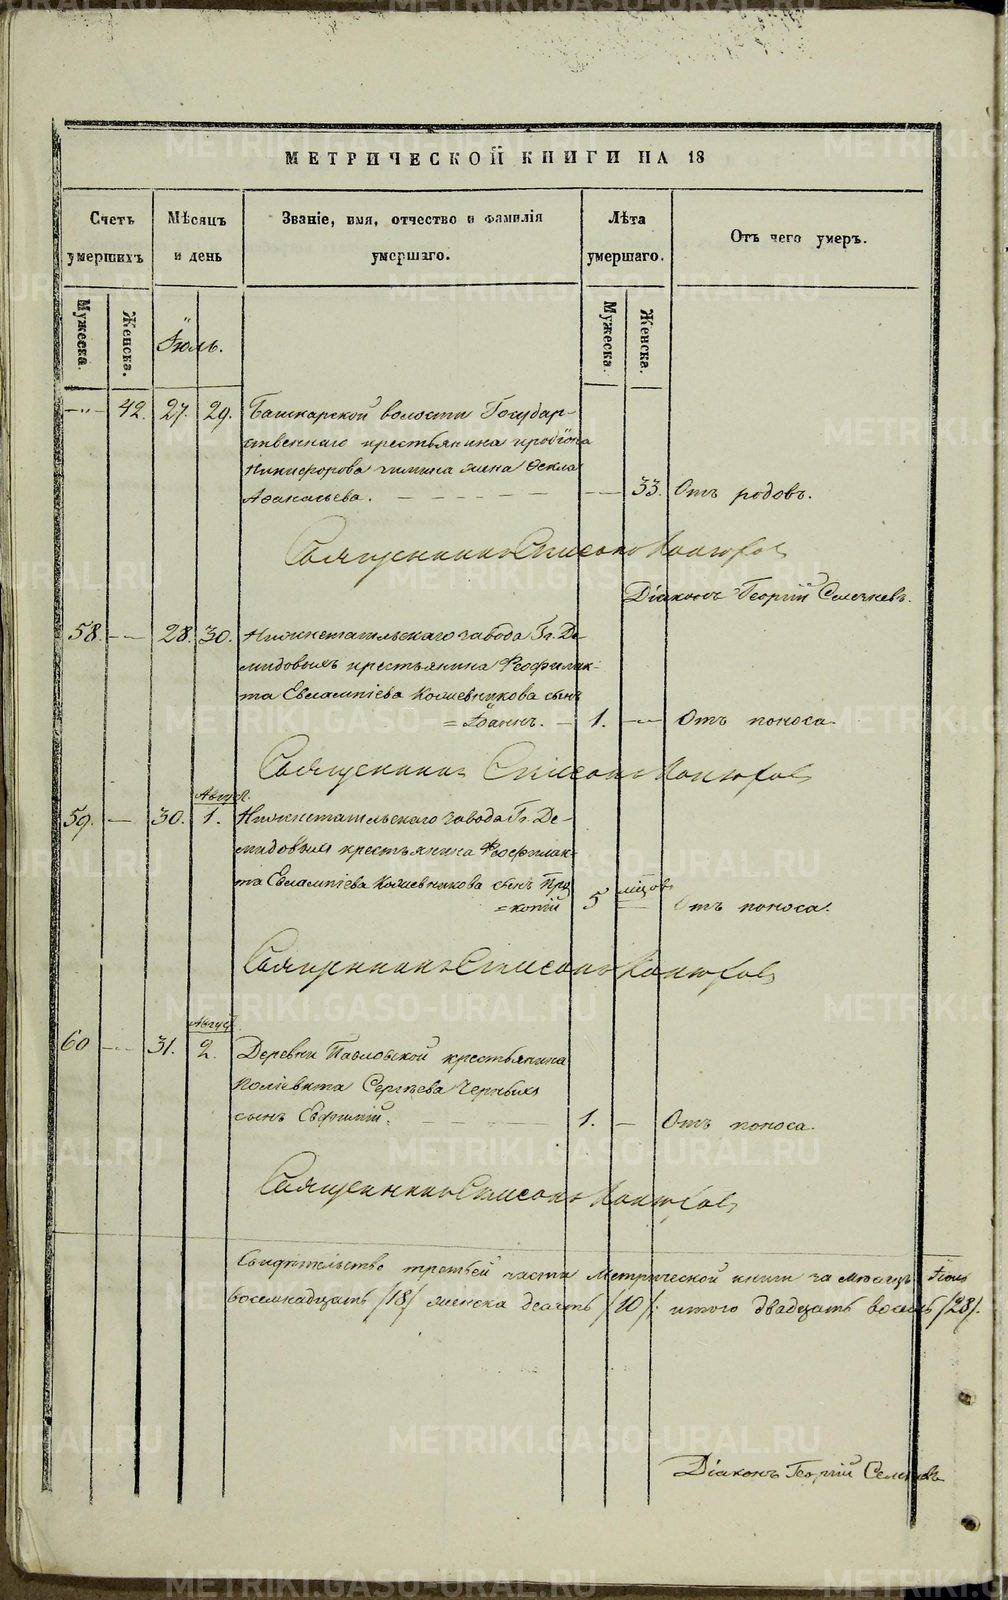 МЕТРИЧЕСКОЙ КНИГИ НА 18
Счетъ умершихъ
Мѣсяцъ и день
Званіе, имя, отчество и фамилія умершаго.
Лѣта умершаго.
Отъ чего умеръ.
Мужеска.
Женска.
Іюль.
Мужеска.
Женска.
—„— 42. 27. 29. Башкарской волости Государ-
ственнаго крестьянина
Никифорова жена Ѳекла
Аѳанасьева. — — 33. Отъ родовъ.
Священникъ
Діаконъ Георгій
58. — 28. 30. Нижнетагильскаго завода Гг. Де-
мидовыхъ крестьянина Ѳеофилак-
та Евлампіева Кожевникова сынъ
= Іоаннъ. — 1. — Отъ поноса.
Священникъ
Август.
59. — 30. 1. Нижнетагильскаго завода Гг. Де-
мидовыхъ крестьянина Ѳеофилак-
та Евлампіева Кожевникова сынъ Про
=копій 5 мцовъ Отъ поноса.
Священникъ
Август.
60 — 31. 2. Деревни Павловской крестьянина
Сергѣева Черныхъ
сынъ Евфимій. — 1. — Отъ поноса.
Священникъ
Свидѣтельство третьей части Метрической книги за мѣсяцъ Іюль
восемнадцать /18/ женска десять /10/; итого двадцать восемь /28/.
Діаконъ Георгій
METRIKI.GASO-URAL.RU